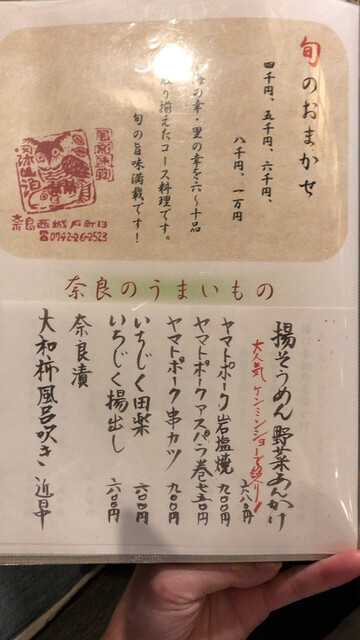 旬のおまかせ
四千円、五千円、六千円、
八千円、一万円
海の幸・里の幸を六〜十品
取り揃えたコース料理です。
旬の旨味満載です！
奈良西城戸町13
☎0742-26-2523
奈良のうまいもの
揚そうめん野菜あんかけ
六八〇円
大人気ケンミンショーで
ヤマトポーク岩塩焼 九〇〇円
ヤマトポークアスパラ巻 七五〇円
ヤマトポーク串カツ 九〇〇円
いちじく田楽 六〇〇円
いちじく揚出し 六〇〇円
奈良漬
大和柿風呂吹き 近日